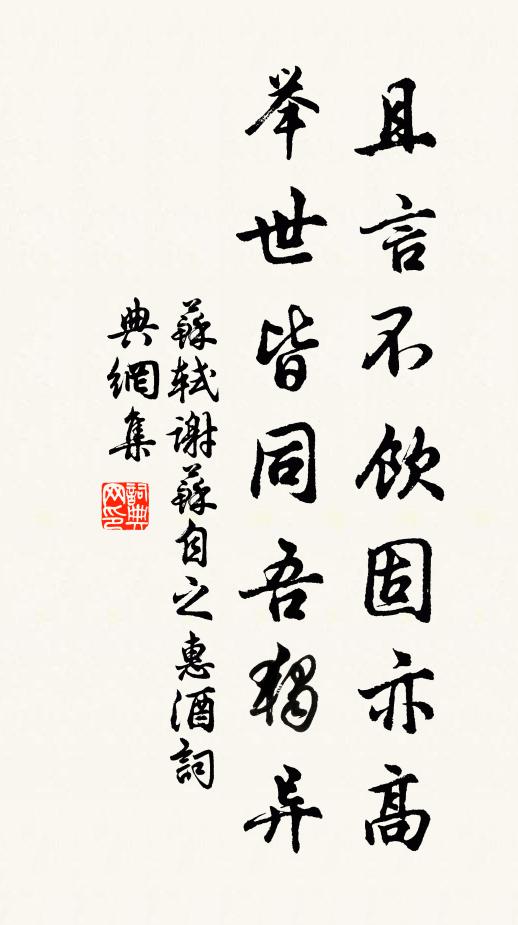 且言不饮固亦高
举世皆同吾独异
蘇轼謝蘇自之惠酒詞
典網集
詞典网印